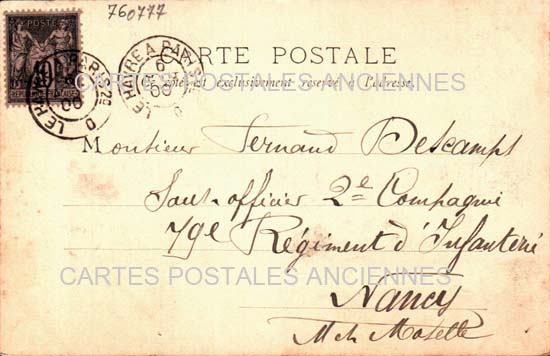 760777
CARTE POSTALE
Ce côté est exclusivement réservé à l'adresse.
LE HAVRE A PARIS
LE HAVRE A PARIS
CARTES POSTALES ANCIENNES
Monsieur Fernand Descamps
Sous-officier 2e Compagnie
79e Régiment d'Infanterie
CARTES POSTALES ANCIENNES
Nancy
M et Moselle